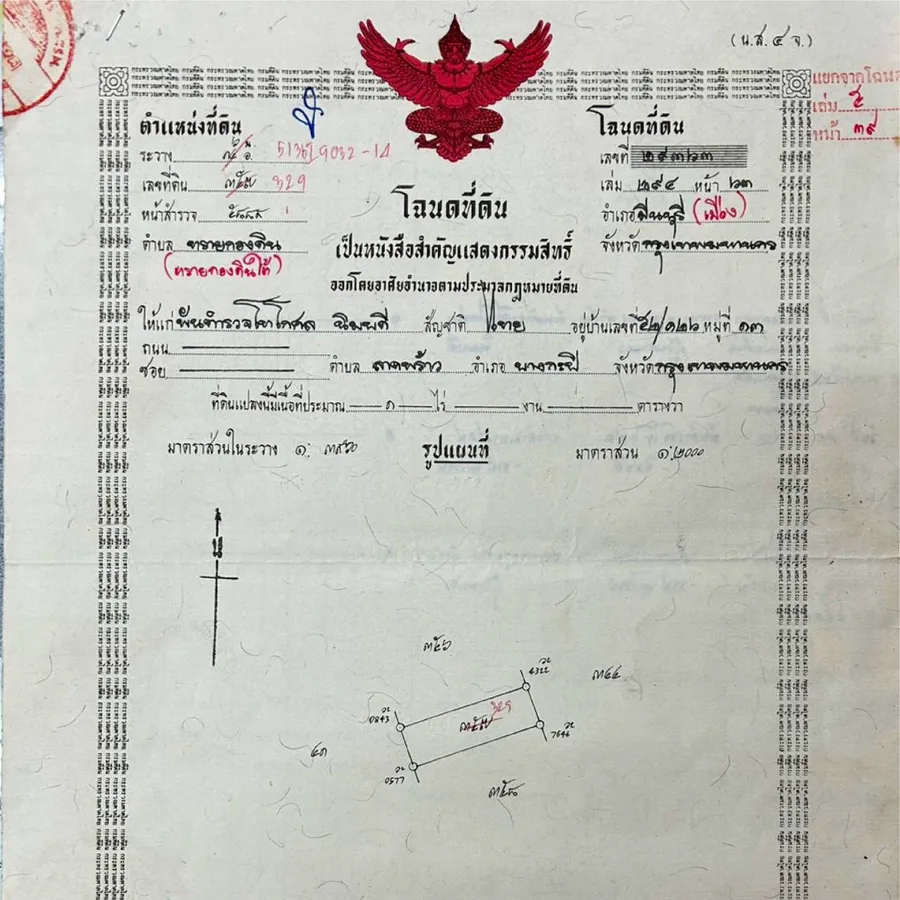 (น.ส.๔ จ.)
แยกจากโฉนด
เล่ม ๕
หน้า ๓๙
ตำแหน่งที่ดิน
ระวาง 5136 I 9032-14
เลขที่ดิน 329
หน้าสำรวจ
ตำบล ทรายกองดิน
(ทรายกองดินใต้)
โฉนดที่ดิน
เลขที่ ๒๙๓๖๓
เล่ม ๒๙๔ หน้า ๖๓
อำเภอ มีนบุรี (เมือง)
จังหวัด กรุงเทพมหานคร
โฉนดที่ดิน
เป็นหนังสือสำคัญแสดงกรรมสิทธิ์
ออกโดยอาศัยอำนาจตามประมวลกฎหมายที่ดิน
ให้แก่ พันตำรวจโท สัญชาติ ไทย อยู่บ้านเลขที่ ๕๒/๑๒๖ หมู่ที่ ๑๓
ถนน
ซอย ตำบล ลาดพร้าว อำเภอ บางกะปิ จังหวัด กรุงเทพมหานคร
ที่ดินแปลงนี้มีเนื้อที่ประมาณ ๑ ไร่ งาน ตารางวา
มาตราส่วนในระวาง ๑: รูปแผนที่ มาตราส่วน ๑:๒๐๐๐
น
4322
0843
329
7646
0577